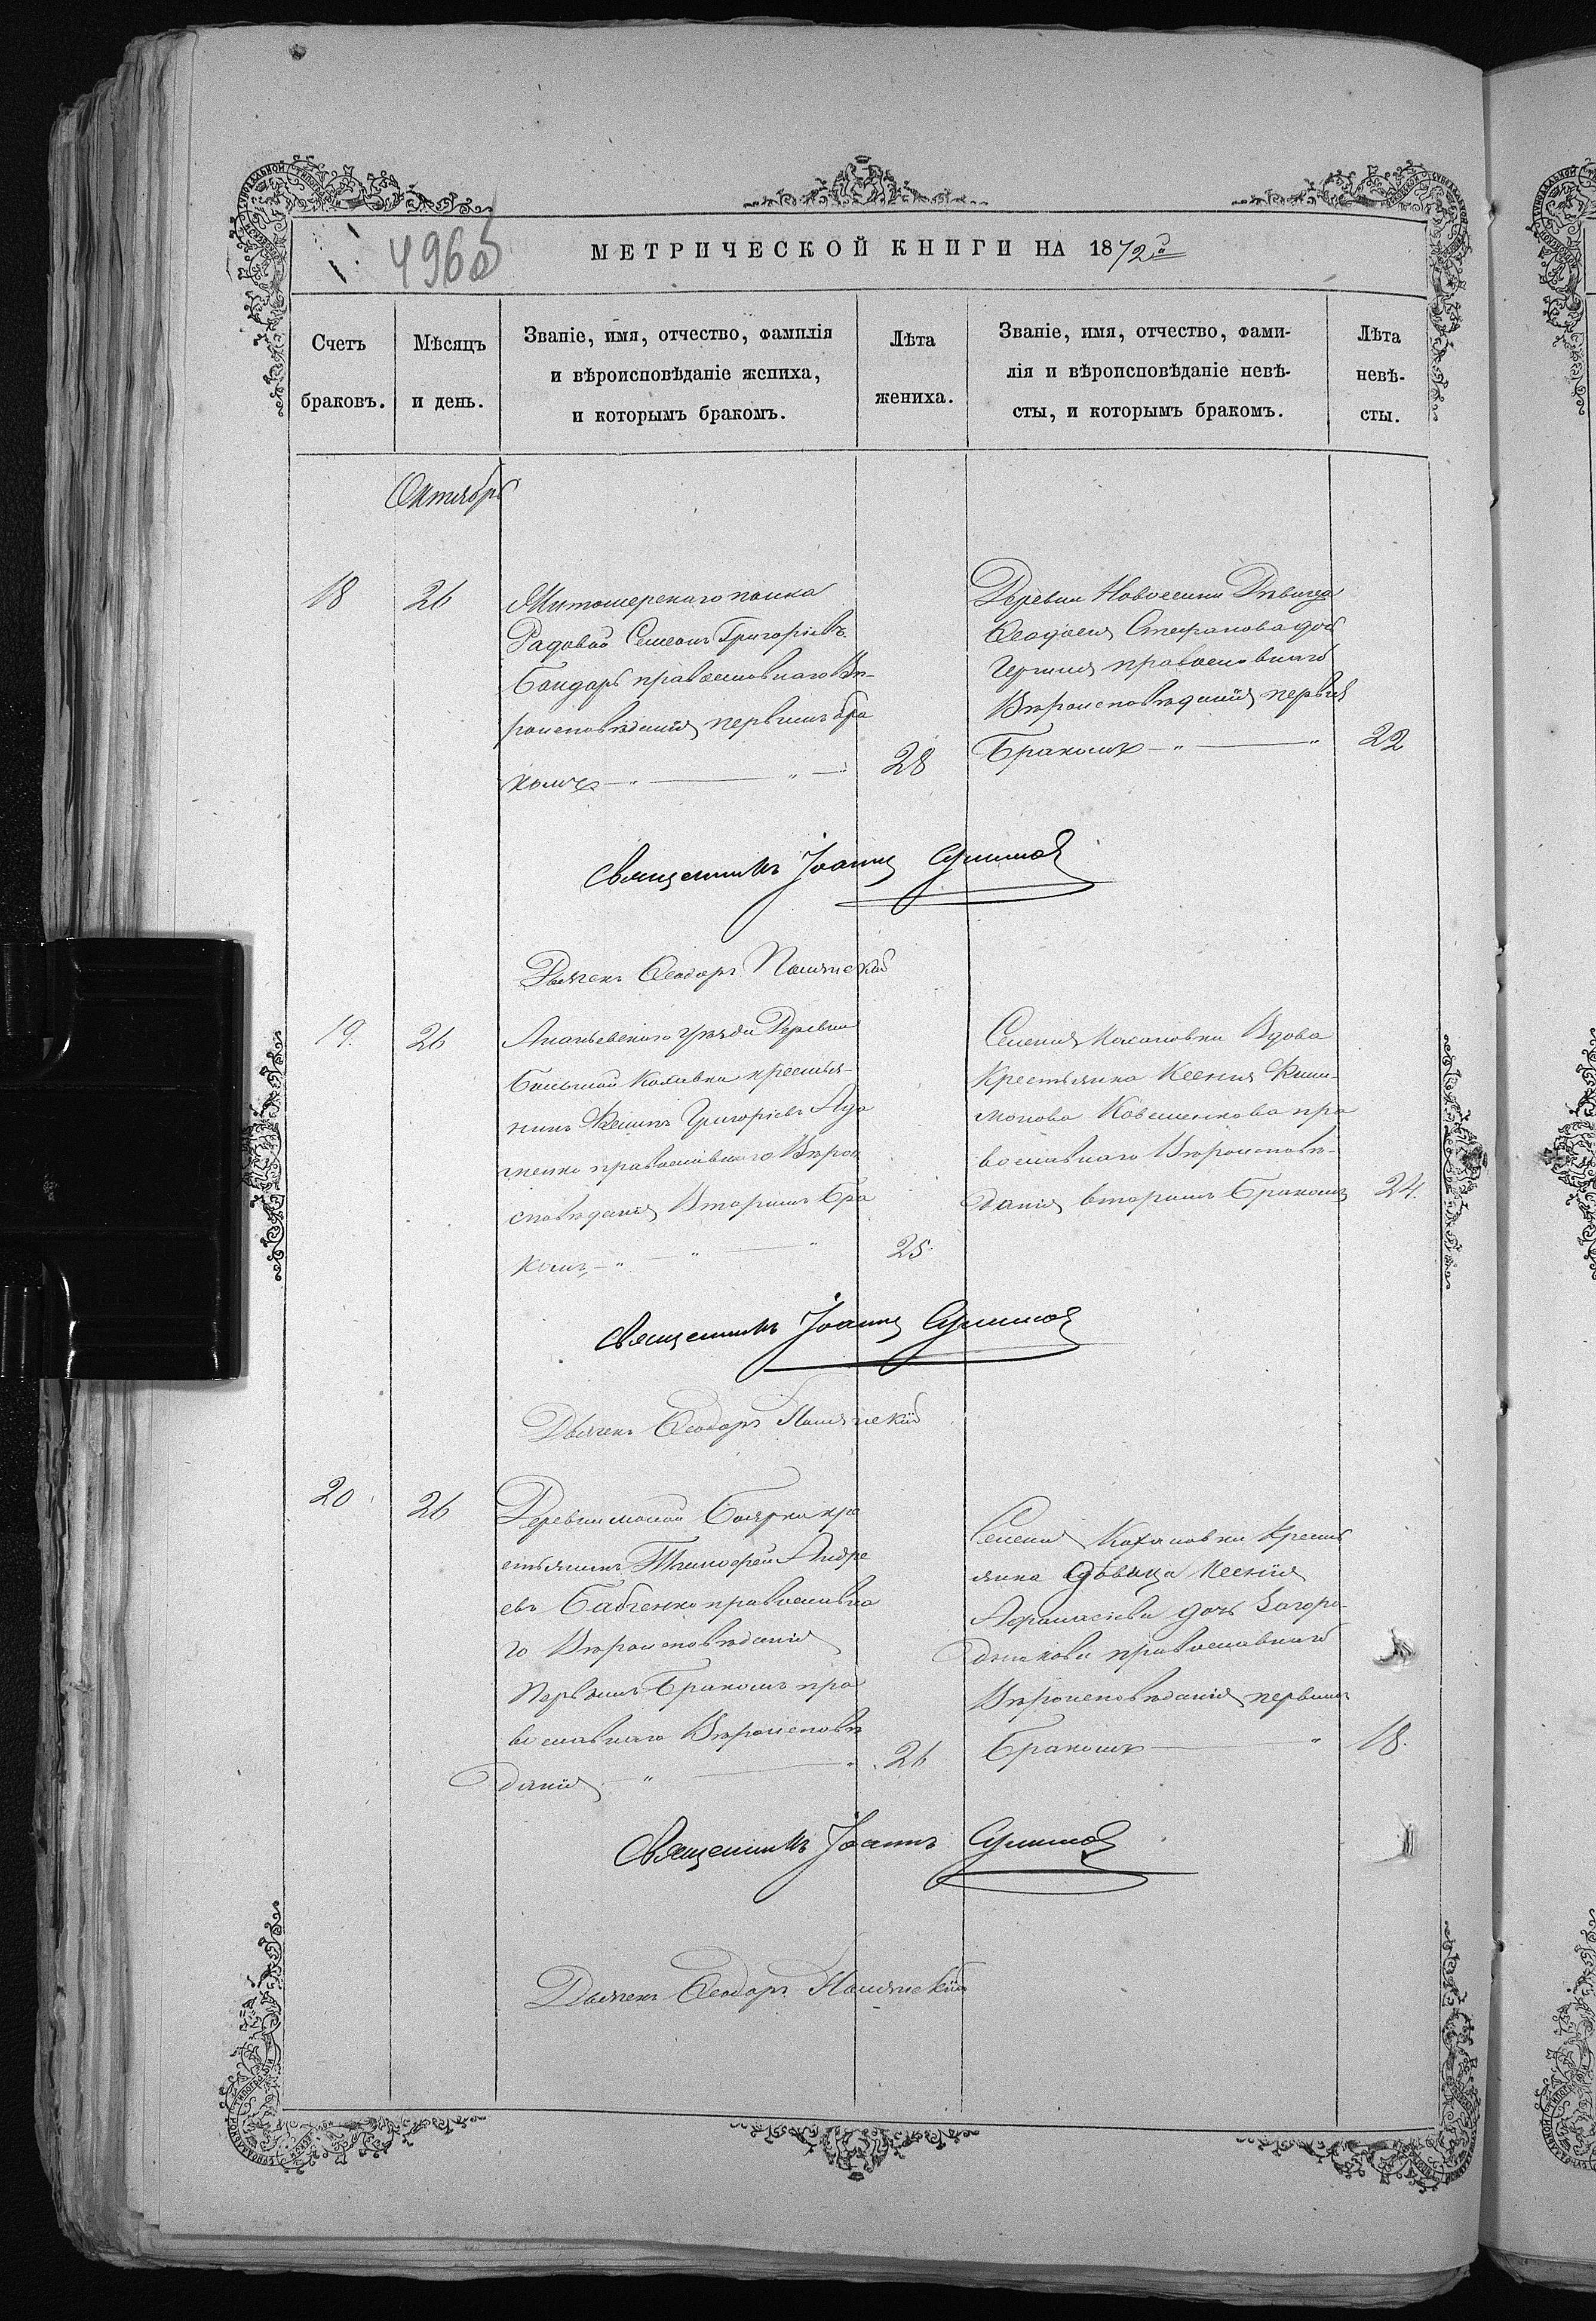 496об
МЕТРИЧЕСКОЙ КНИГИ НА 1872й
Счетъ браковъ.
Мѣсяцъ и день.
Званіе, имя, отчество, фамилія
и вѣроисповѣданіе жениха,
и которымъ бракомъ.
Лѣта жениха.
Званіе, имя, отчество, фами-
лія и вѣроисповѣданіе невѣ-
сты, и которымъ бракомъ.
Лѣта невѣ-
сты.
Октябрь
18
26
Житомерскаго полка
Радовой Семеонъ Григоріевъ
Бондарь православнаго Вѣ-
роисповѣданія первымъ бра
комъ
28
Деревни Новоселки Дѣвица
Феодосія Стефанова доч
православнаго
Вѣроисповѣданія первым
Бракомъ
22
Священникъ Іоаннъ
Дьячекъ Феодоръ
19.
26
Ананьевскаго уѣзда Деревни
Большой крестья-
нинъ Григоріевъ
православнаго Вѣрои
сповѣданія Вторымъ Бра
комъ
25.
Селенія Вдова
Крестьянка Ксенія Фили-
монова пра
вославнаго Вѣроисповѣ-
данія вторымъ Бракомъ
24.
Священникъ Іоаннъ
Дьячекъ Феодоръ
20.
26
Деревни малой Боярки кре
стьянинъ Тимофей Андре
евъ Бабченко православна
го Вѣроисповѣданія
Первымъ Бракомъ пра
вославнаго Вѣроисповѣ
данія
26
Селенія Кохановки Кресть
янка дѣвица Ксенія
Афанасіева дочь Загоро-
днякова православнаго
Вѣроисповѣданія первымъ
Бракомъ
18.
Священникъ Іоаннъ
Дьячекъ Феодоръ